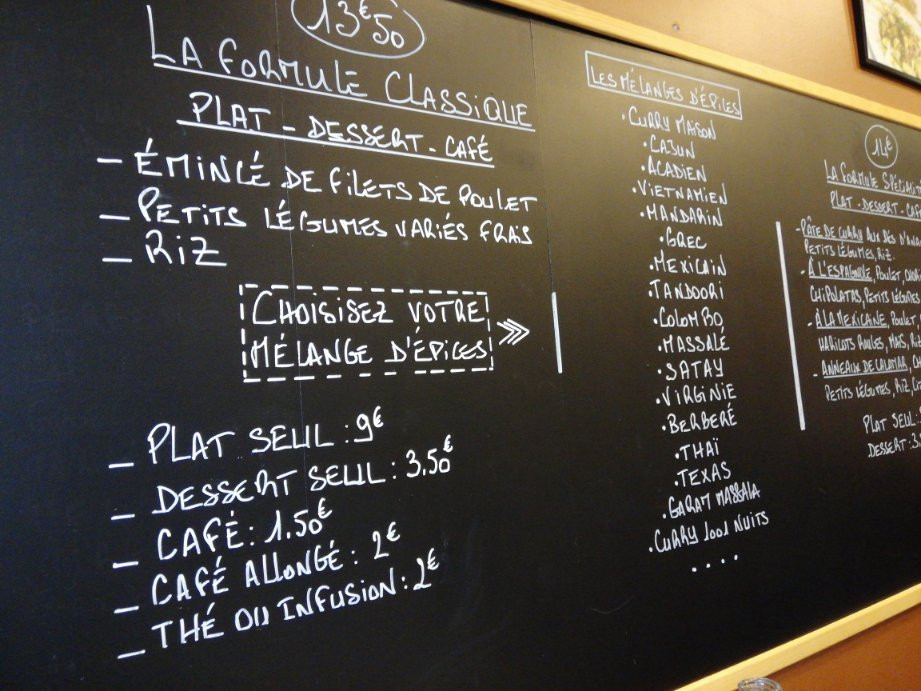 13€50
LA FORMULE CLASSIQUE
PLAT - DESSERT - CAFÉ
- ÉMINCÉ DE FILETS DE POULET
- PETITS LÉGUMES VARIÉS FRAIS
- RIZ
CHOISISEZ VOTRE
MÉLANGE D'ÉPICES >>
- PLAT SEUL : 9€
- DESSERT SEUL : 3,50€
- CAFÉ : 1.50€
- CAFÉ ALLONGÉ : 2€
- THÉ OU INFUSION : 2€
LES MÉLANGES D'ÉPICES
• CURRY MAISON
• CAJUN
• ACADIEN
• VIETNAMIEN
• MANDARIN
• GREC
• MEXICAIN
• TANDOORI
• COLOMBO
• MASSALÉ
• SATAY
• VIRGINIE
• BERBERÉ
• THAÏ
• TEXAS
• GARAM MASSALA
• CURRY 1001 NUITS
....
14€
LA FORMULE
PLAT - DESSERT -
- PÂTE DE CURRY AUX DÉS
PETITS LÉGUMES, RIZ.
- À L'ESPAGNOLE, POULET,
CHIPOLATAS, PETITS LÉGUMES
- À LA MEXICAINE, POULET
HARICOTS ROUGES, MAÏS, RIZ
- ANNEAUX DE CALAMAR,
PETITS LÉGUMES, RIZ,
PLAT SEUL :
DESSERT : 3.